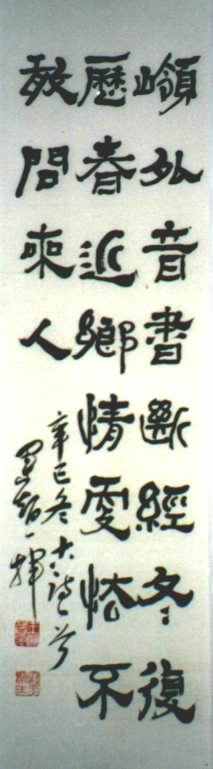 嶺外音書斷經冬復
歷春近鄉情更怯不
敢問來人
辛巳冬